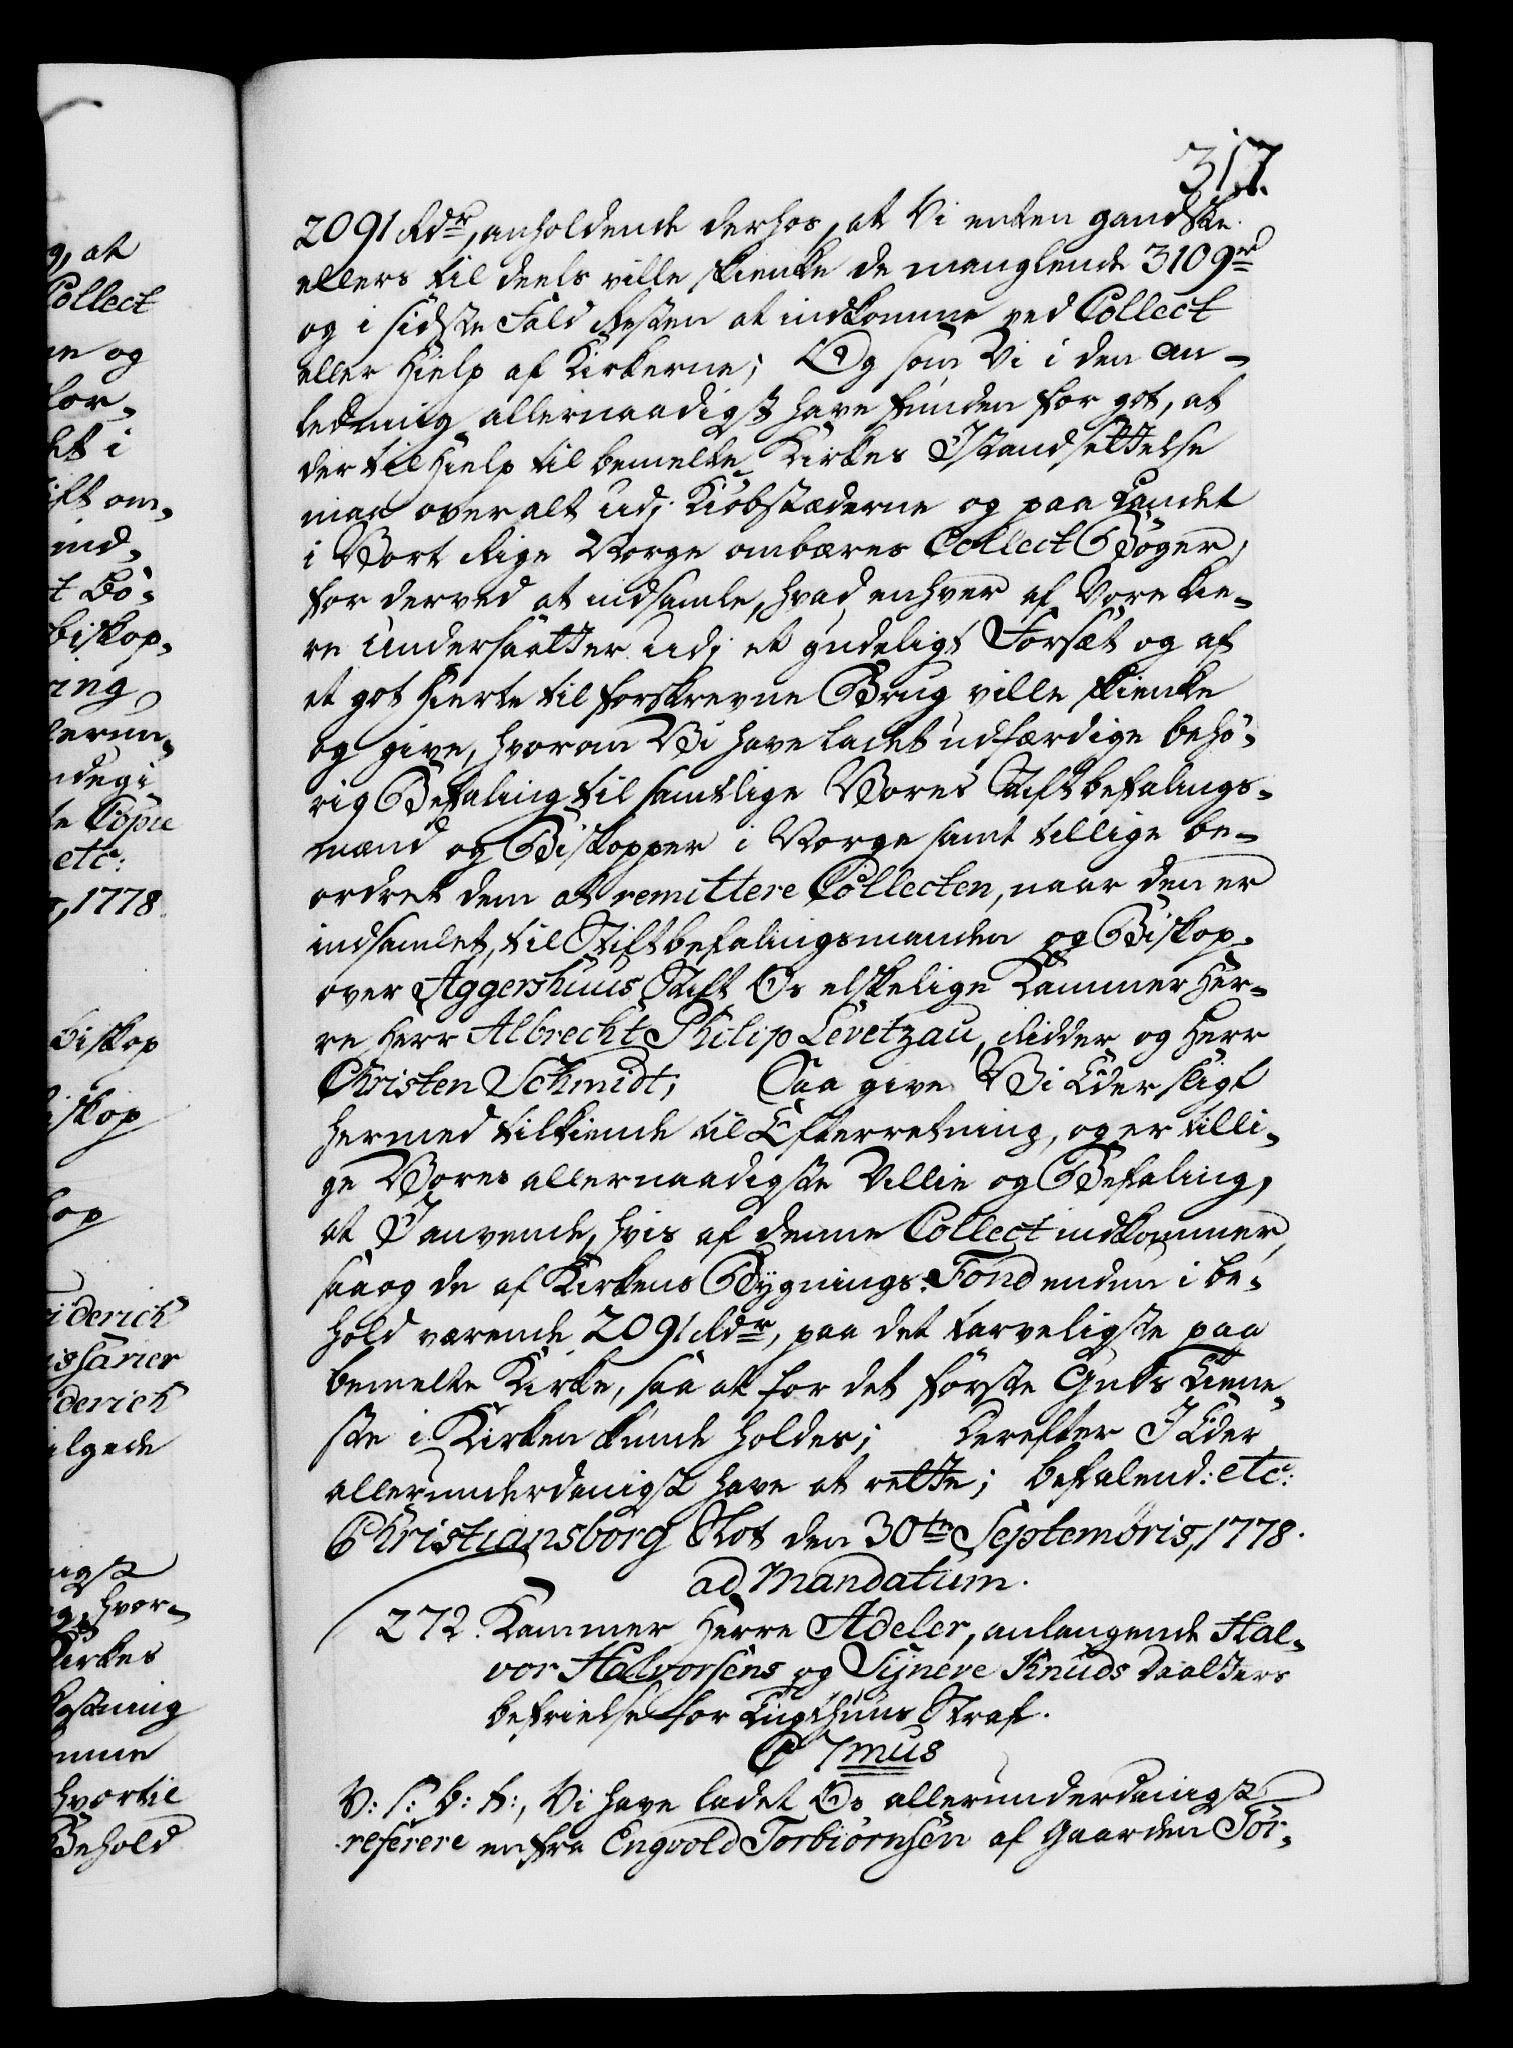 317.
2091 Rdr, anholdende derhos, at Vi enten gandske
ellers til deels ville skienke de manglende 3109 r
og i sidste Fald Resten at indkomme ved Collect
eller Hielp af Kirkerne; Og som Vi i den An-
ledning allernaadigst have funden for got, at
der til Hielp til bemelte Kirkes Istandsettelse
maa overalt udj Kiöbstæderne og paa Landet
i Vort Rige Norge ombæres Collect Bøger,
for derved at indsamle, hvad enhver af Vore kie-
re Undersaatter udj et gudeligt Forsæt og af
et got Hierte til forskrevne Brug ville skienke
og give, hvorom Vi have ladet udfærdige behö-
rig Befaling til samtlige Vores Stiftbefalings-
mænd og Biskopper i Norge samt tillige be-
ordret dem at remittere Collecten, naar den er
indsamlet, til Stiftbefalingsmanden og Biskop
over Aggershuus Stift Os elskelige Kammer Her-
re Herr Albrecht Philip Levetzau, Ridder og Herr
Christen Schmidt; Saa give Vi Eder sligt
hermed tilkiende til Efterretning, og er tilli-
ge Vores allernaadigste Villie og Befaling,
at I anvende, hvis af denne Collect indkommer,
saa og de af Kirkens Bygnings-Fond endnu i be-
hold værende 2091 Rdr, paa det tarveligste paa
bemelte Kirke, saa at for det förste Guds Tiene-
ste i Kirken kunde holdes; Derefter I Eder
allerunderdanigst have at rette; Befalend: etc:
Christiansborg Slot den 30te Septembris, 1778.
ad Mandatum.
272. Kammer Herre Adeler, anlangende Hal-
vor Halvorsens og Sijneve Knuds Daatters
befrielse for Tugthuus Straf.
C 7mus
V: S: G: T:, Vi have ladet Os allerunderdanigst
referere en fra Engvold Torbiörnsen af Gaarden Tör-
g, at
Collect
ne og
for-
det i
tift om-
ind-
t Bö-
biskop-
ring
lerun-
ndegi-
te Copie
etc:
1778
Biskop
iskop
kop
riderich
issarier
iderich
nigst
g, hvor-
Kirkes
kostning
omme
hvortil
Behold